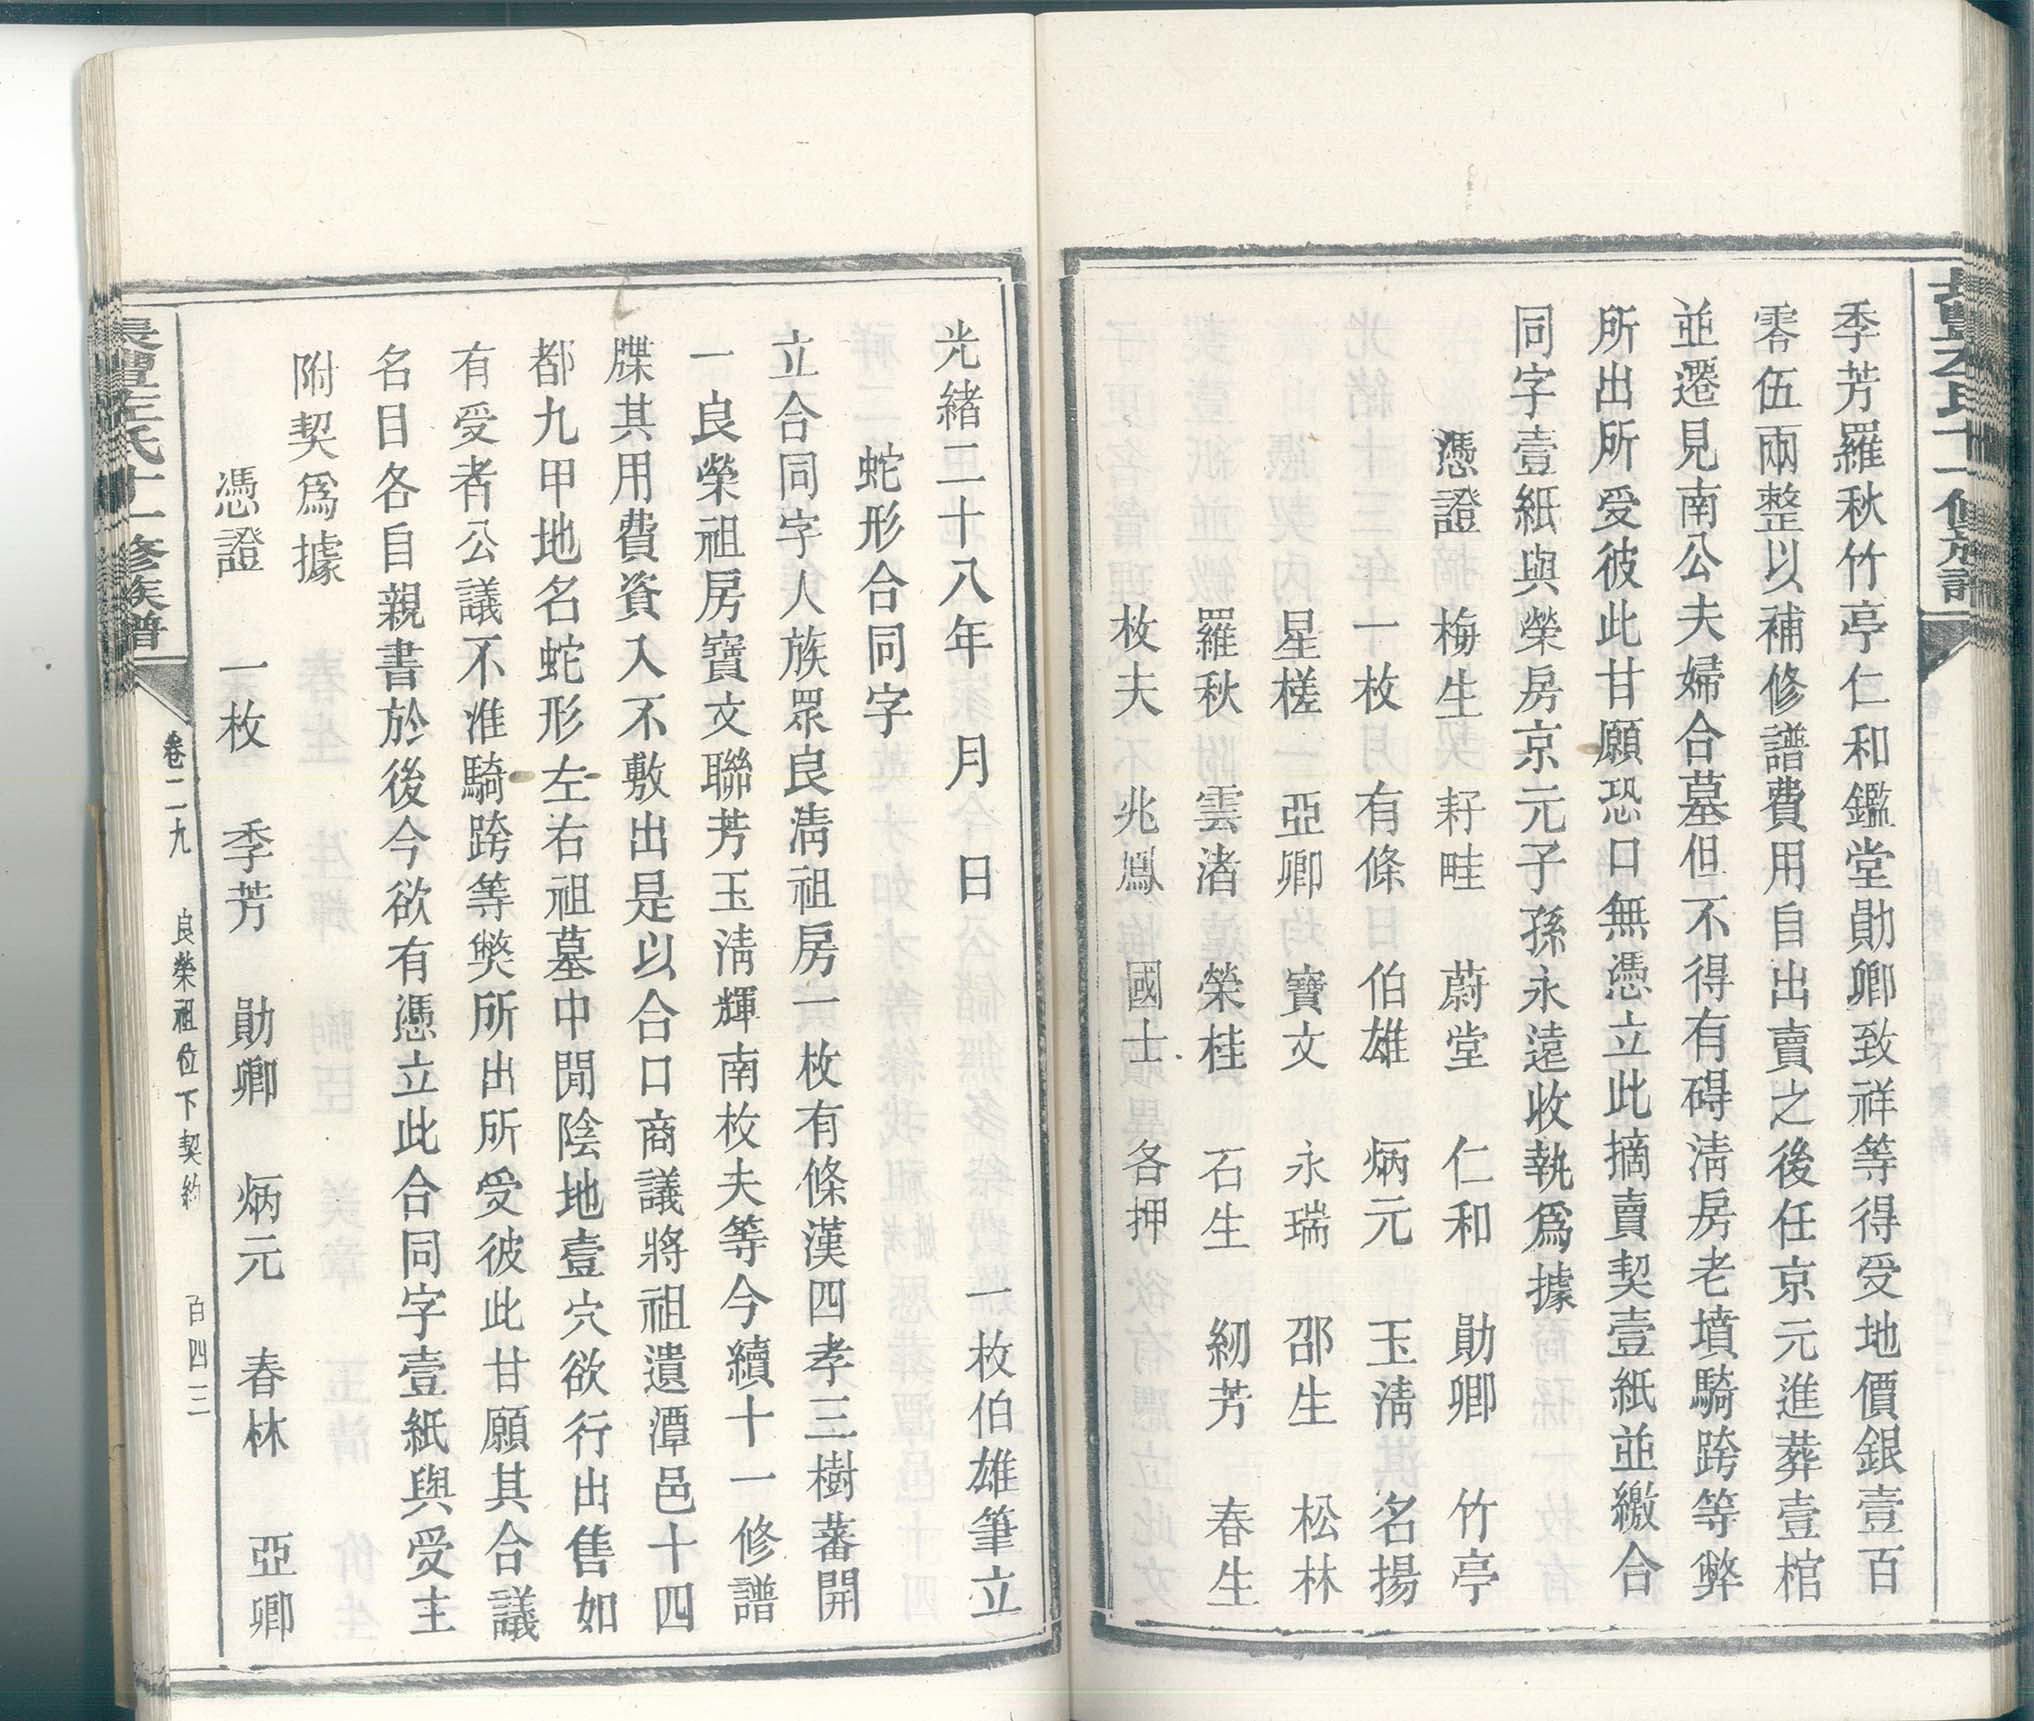 季芳羅秋竹亭仁和鑑堂勛卿致祥等得受地價銀壹百
零伍兩整以補修譜費用自出賣之後任京元進葬壹棺
並遷見南公夫婦合墓但不得有碍淸房老墳騎跨等弊
所出所受彼此甘願恐口無憑立此摘賣契壹紙並繳合
同字壹紙與榮房京元子孫永遠收執爲據
憑證 梅生 耔畦 蔚堂 仁和 勛卿 竹亭
一枚 有條 伯雄 炳元 玉淸 名揚
星槎 亞卿 寶文 永瑞 邵生 松林
羅秋 雲渚 榮桂 石生 紉芳 春生
枚夫 兆鳳 國士 各押
光緒二十八年 月 日 一枚伯雄筆立
蛇形合同字
立合同字人族眾良淸祖房一枚有條漢四孝三樹蕃開
一良榮祖房寶文聯芳玉淸輝南枚夫等今續十一修譜
牒其用費資入不敷出是以合口商議將祖遺潭邑十四
都九甲地名蛇形左右祖墓中閒陰地壹穴欲行出售如
有受者公議不准騎跨等獘所出所受彼此甘願其合議
名目各自親書於後今欲有憑立此合同字壹紙與受主
附契爲據
憑證 一枚 季芳 勛卿 炳元 春林 亞卿
左氏十一修族譜
卷二九 良榮祖位下契約 百四三